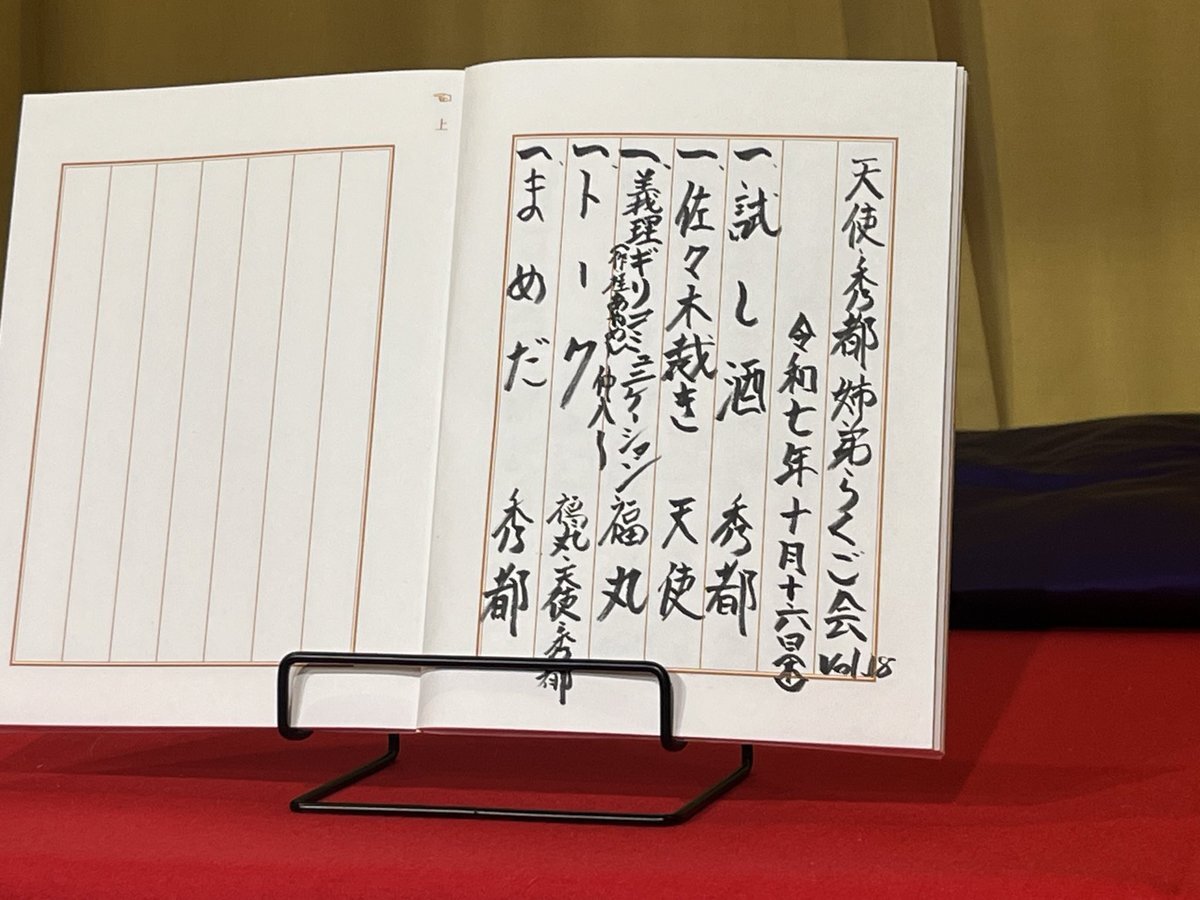 天使・秀都 姉弟らくご会 Vol.18
令和七年十月十六日㊍
一、試し酒 秀都
一、佐々木裁き 天使
一、義理ギリコミュニケーション 福丸
一、トーク 福丸・天使・秀都
ー仲入ー
一、まめだ 秀都
上